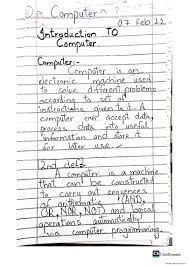 Computer
07 Feb 22
Introduction TO
Computer.
Computer:-
Computer is an
electronic machine used
to solve different problems
according to set of
instructions given to it. A
computer can accept data,
process data into useful
information and store it
for later use.
2nd def:
A computer is a machine
that can be constructed
to carry out sequences
of arithmatic (AND,
OR, NOR, NOT) and logical
operations automatically
via computer programming.
CamScanner